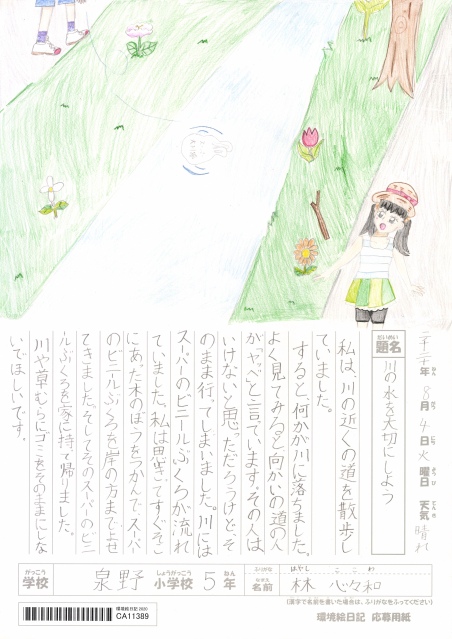 二千二十年 8月 4日 火曜日 天気 晴れ
ねん がつ にち ようび てんき
だいめい
題名 川の水を大切にしよう
私は、川の近くの道を散歩し
ていました。
すると、何かが川に落ちました。
よく見てみると向かいの道の人
が「ヤッベ」と言っています。その人は
いけないと思っだだろうけど、そ
のまま行ってしまいました。川には
スーパーのビニールぶくろが流れ
ていました。私は思いきってすぐそこ
にあった木のぼうをつかんで、スーパー
のビニールぶくろを岸の方までよせ
てきました。そしてそのスーパーのビニー
ルぶくろを家に持って帰りました。
川や草むらにゴミをそのままにしな
いでほしいです。
がっこう しょうがっこう ねん ふりがな はやし ここわ
学校 泉野 小学校 5年 名前 林 心々和
(漢字で名前を書いた場合は、ふりがなをふってください)
環境絵日記2020
CA11389
環境絵日記 応募用紙